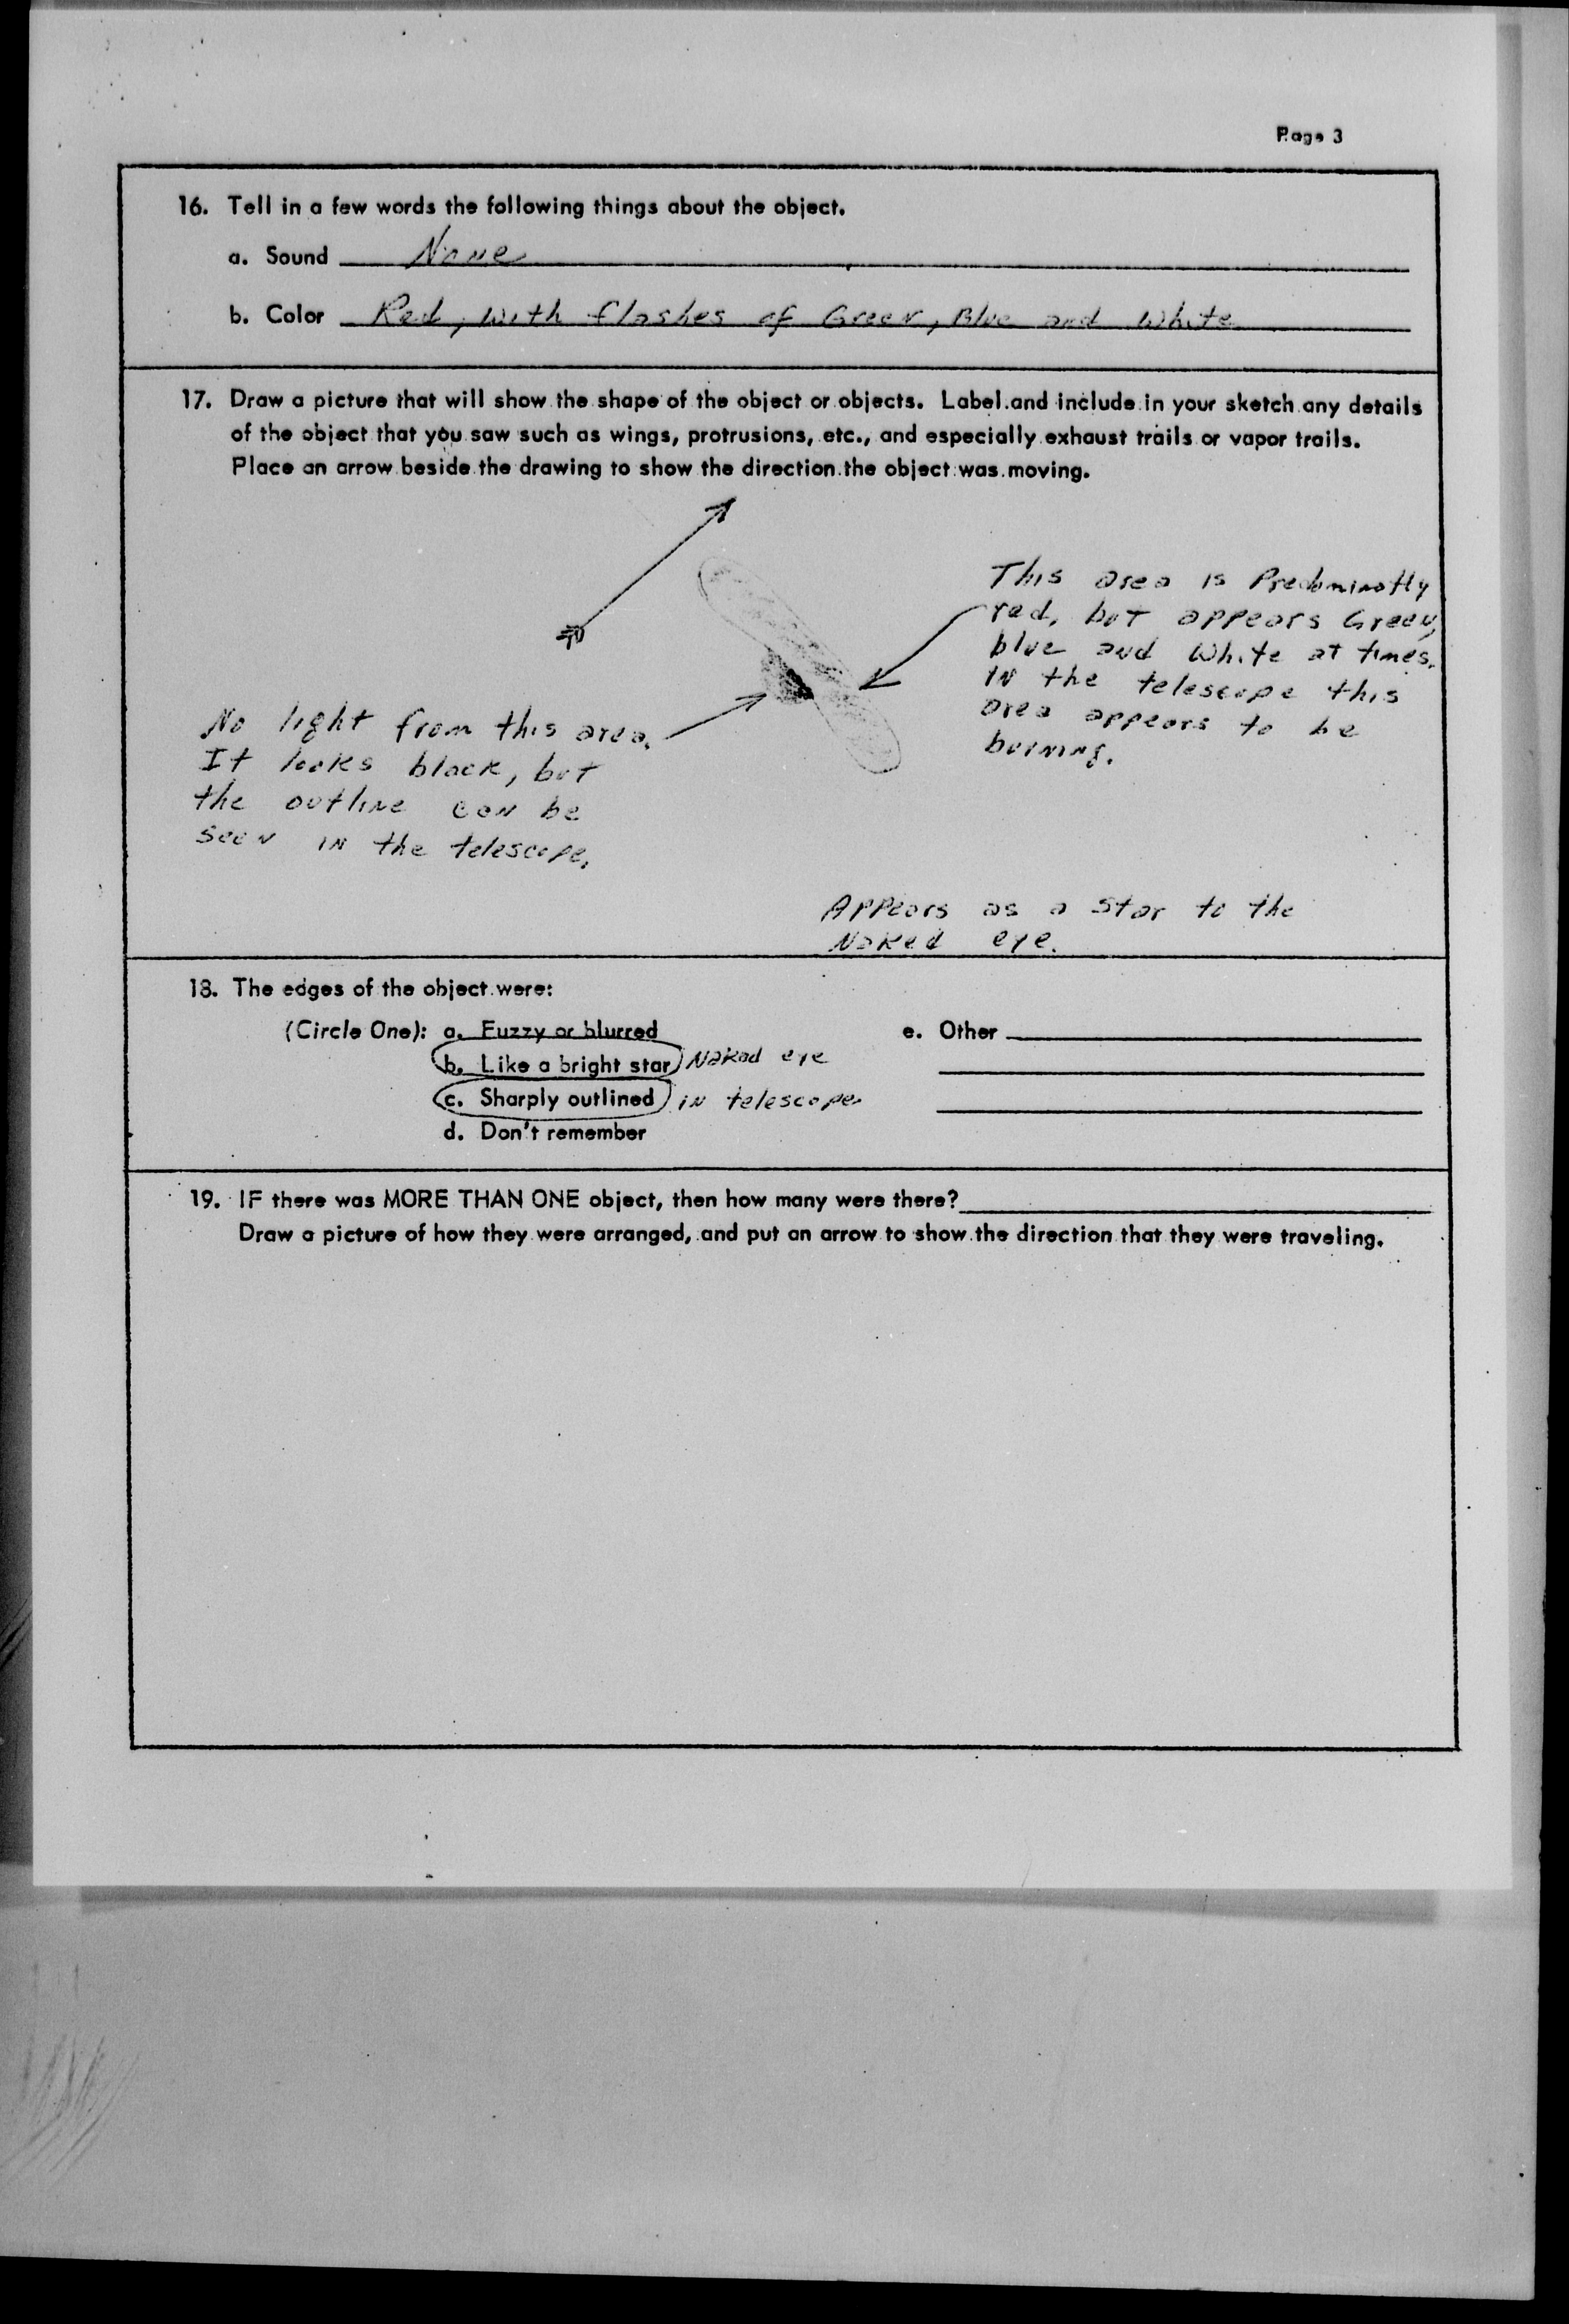 Page 3
16. Tell in a few words the following things about the object.
a. Sound None
b. Color Red, with flashes of Green, Blue and White
17. Draw a picture that will show the shape of the object or objects. Label and include in your sketch any details
of the object that you saw such as wings, protrusions, etc., and especially exhaust trails or vapor trails.
Place an arrow beside the drawing to show the direction the object was moving.
This area is Predominatly
red, but appears Green,
blue and White at times.
IN the telescope this
area appears to be
burning.
No light from this area.
It looks black, but
the outline can be
seen in the telescope.
Appears as a star to the
Naked eye.
18. The edges of the object were:
(Circle One): a. Fuzzy or blurred
b. Like a bright star Naked eye
c. Sharply outlined in telescope.
d. Don't remember
e. Other
19. IF there was MORE THAN ONE object, then how many were there?
Draw a picture of how they were arranged, and put an arrow to show the direction that they were traveling.